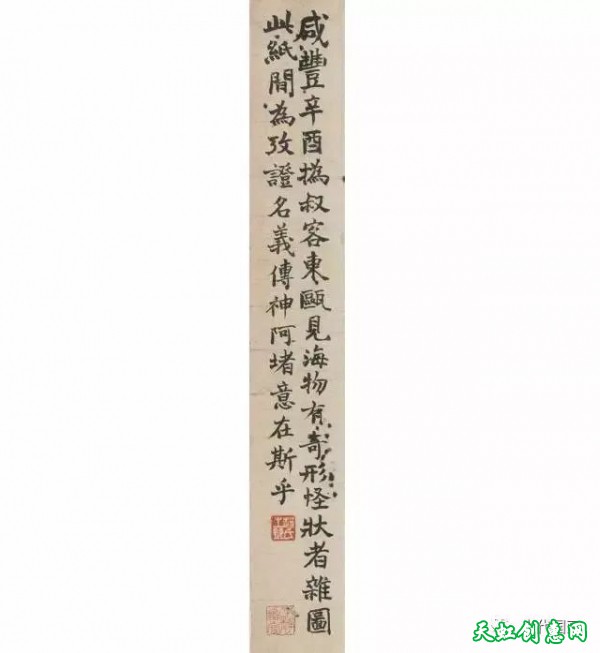 咸豐辛酉撝叔客東甌見海物有奇形怪狀者雜圖
此紙間為攷證名義傳神阿堵意在斯乎
天虹创意网